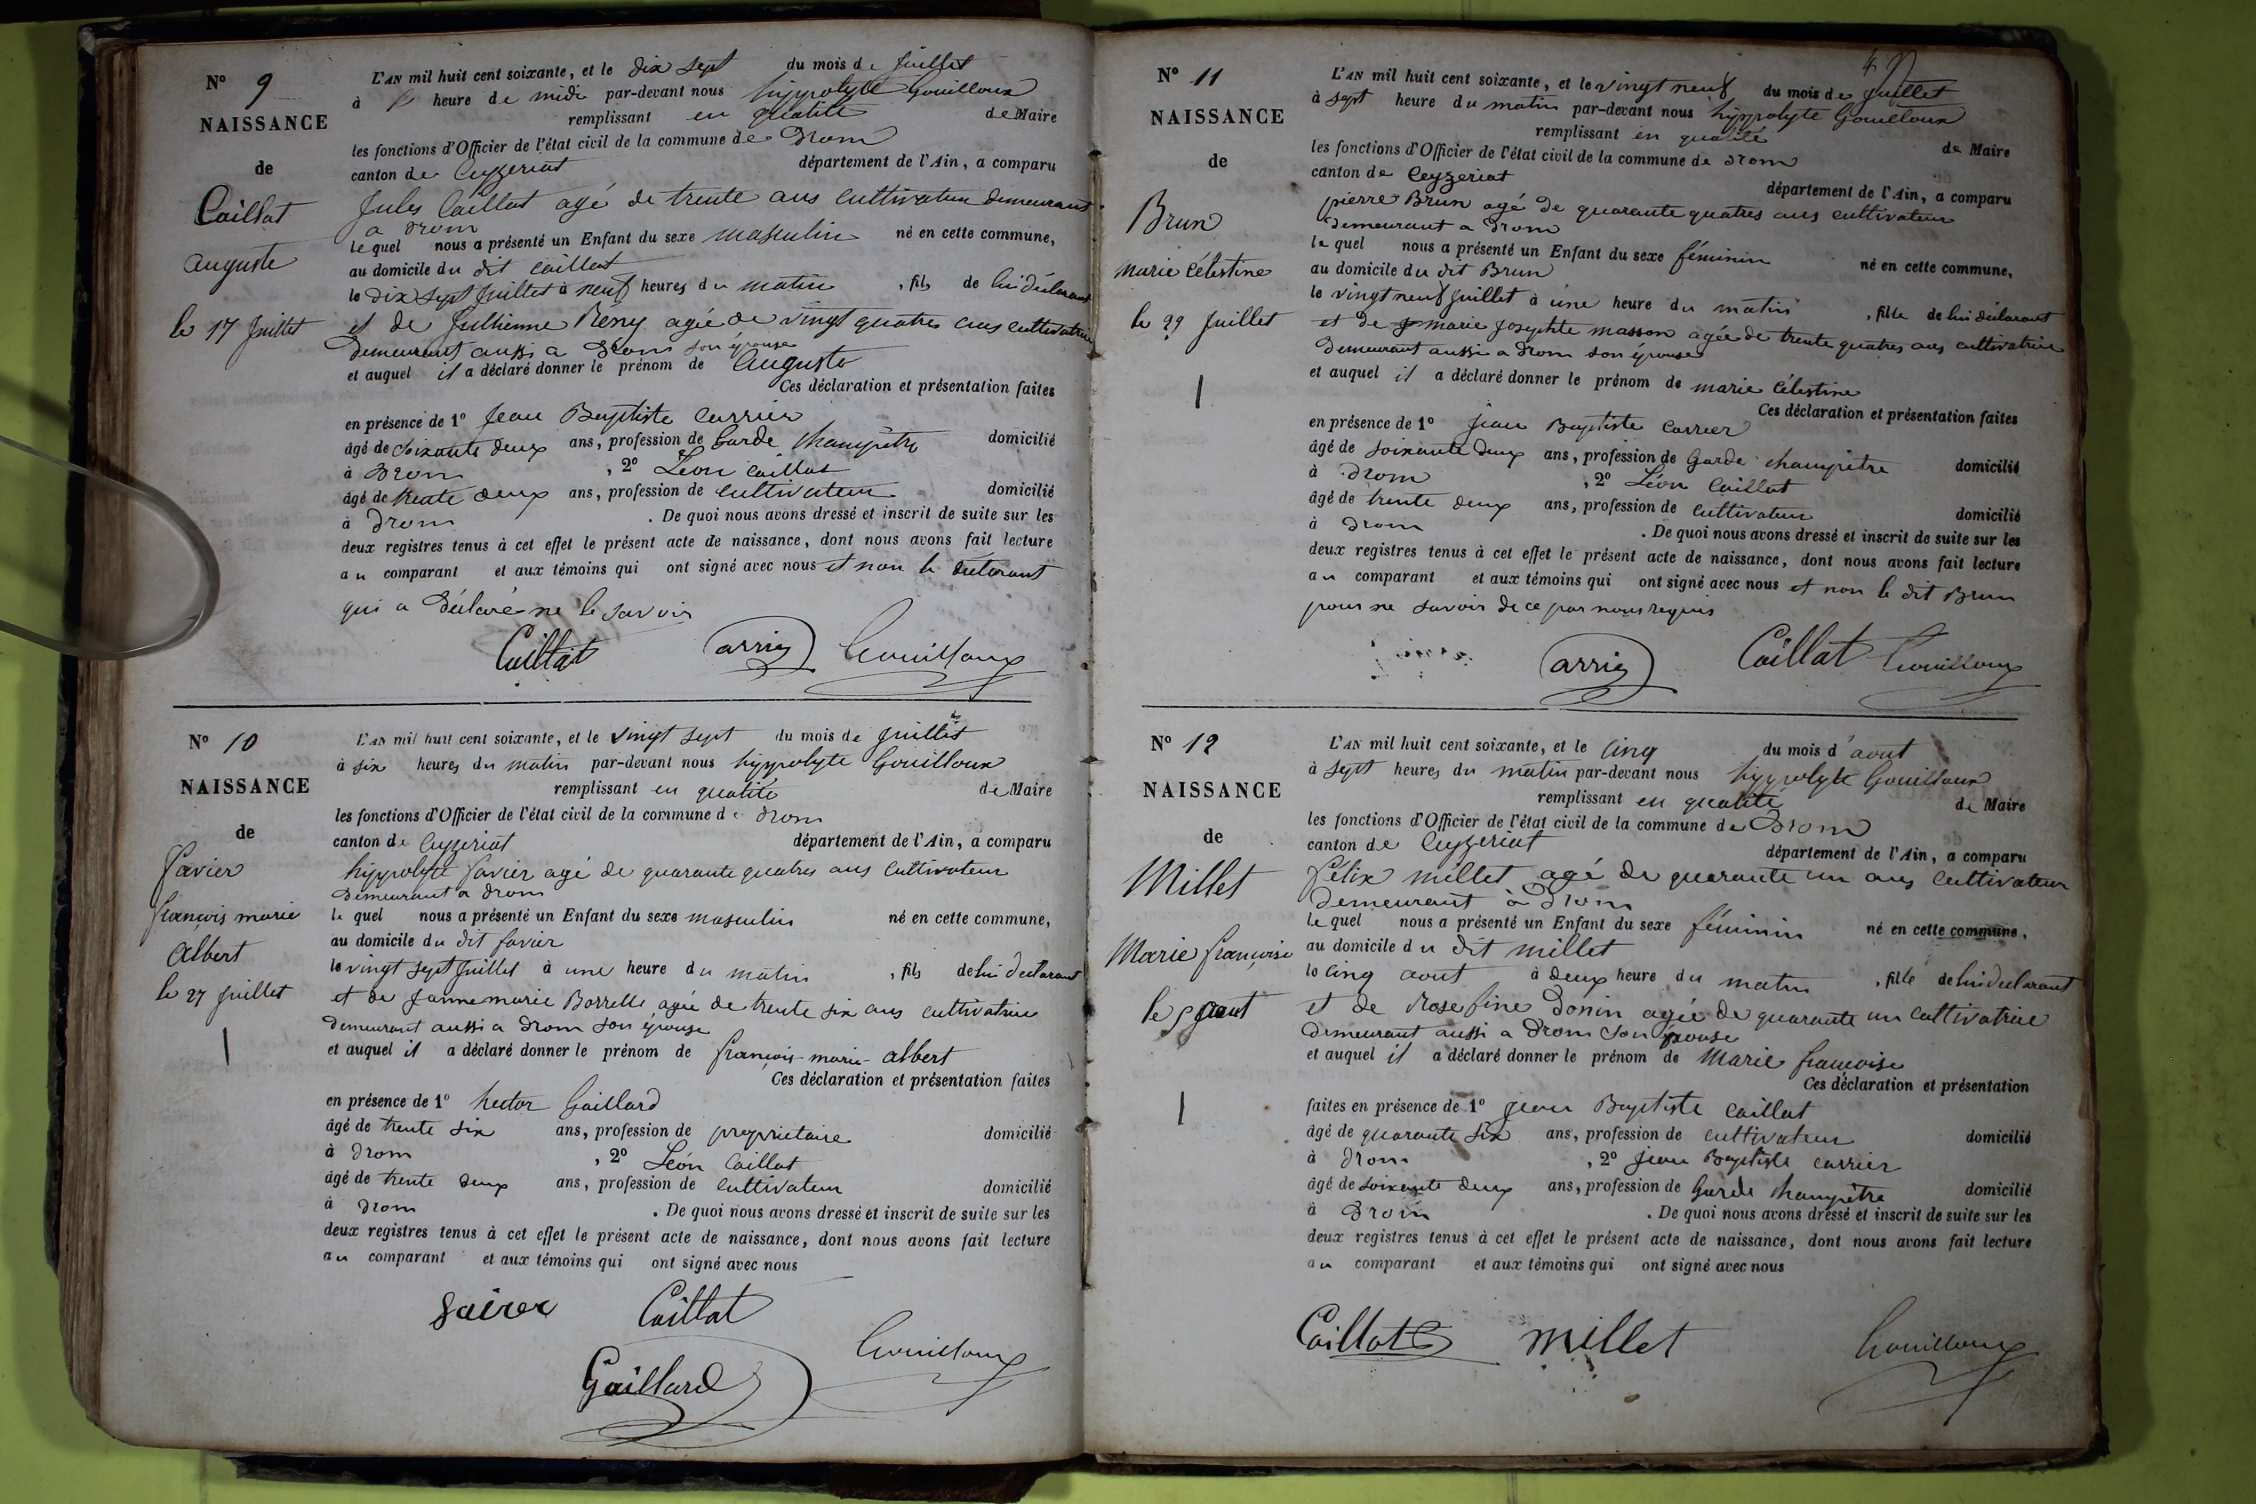 N° 9
NAISSANCE
de
Caillat
auguste
le 17 Juillet
L'AN mil huit cent soixante, et le dix sept du mois de Juillet
à heure de midi par-devant nous hyppolyte Gouilloux
remplissant en qualité de Maire
les fonctions d'Officier de l'état civil de la commune de Drom
canton de Ceyzeriat département de l'Ain, a comparu
Jules Caillat agé de trente ans cultivateur demeurant
a drom
le quel nous a présenté un Enfant du sexe masculin né en cette commune,
au domicile du dit caillat
le dix sept Juillet à neuf heures du matin , fils de lui déclarant
et de Jullienne Reny agée de vingt quatres ans cultivatrice
demeurant aussi a Drom son épouse
et auquel il a déclaré donner le prénom de Auguste
Ces déclaration et présentation faites
en présence de 1° Jean Baptiste Carrier
âgé de soixante deux ans, profession de Garde champêtre domicilié
à Drom , 2° Léon Caillat
âgé de trente deux ans, profession de cultivateur domicilié
à Drom . De quoi nous avons dressé et inscrit de suite sur les
deux registres tenus à cet effet le présent acte de naissance, dont nous avons fait lecture
au comparant et aux témoins qui ont signé avec nous et non le déclarant
qui a déclaré ne le savoir
Caillat arrier Gouilloux
N° 10
NAISSANCE
de
favier
françois marie
Albert
le 27 Juillet
L'AN mil huit cent soixante, et le vingt sept du mois de Juillet
à six heures du matin par-devant nous hyppolyte Gouilloux
remplissant en qualité de Maire
les fonctions d'Officier de l'état civil de la commune de drom
canton de Ceyzeriat département de l'Ain, a comparu
hyppolyte favier agé de quarante quatres ans cultivateur
demeurant a drom
le quel nous a présenté un Enfant du sexe masculin né en cette commune,
au domicile du dit favier
le vingt sept Juillet à une heure du matin , fils de lui declarant
et de Jannemarie Borrelle agée de trente six ans cultivatrice
demeurant aussi a drom son épouse
et auquel il a déclaré donner le prénom de françois-marie-albert
Ces déclaration et présentation faites
en présence de 1° hector Gaillard
âgé de trente six ans, profession de proprietaire domicilié
à drom , 2° Léon Caillat
âgé de trente deux ans, profession de cultivateur domicilié
à drom . De quoi nous avons dressé et inscrit de suite sur les
deux registres tenus à cet effet le présent acte de naissance, dont nous avons fait lecture
au comparant et aux témoins qui ont signé avec nous
Caillat
Gouilloux
Gaillard
N° 11
NAISSANCE
de
Brun
marie Célestine
le 29 Juillet
L'AN mil huit cent soixante, et le vingt neuf du mois de Juillet
à sept heure du matin par-devant nous hyppolyte Gouilloux
remplissant en qualité de Maire
les fonctions d'Officier de l'état civil de la commune de drom
canton de Ceyzeriat département de l'Ain, a comparu
pierre Brun agé de quarante quatres ans cultivateur
demeurant a drom
le quel nous a présenté un Enfant du sexe féminin né en cette commune,
au domicile du dit Brun
le vingt neuf Juillet à une heure du matin , fille de lui déclarant
et de marie Josephte masson agée de trente quatres ans cultivatrice
demeurant aussi a drom son épouse
et auquel il a déclaré donner le prénom de marie Célestine
Ces déclaration et présentation faites
en présence de 1° Jean Baptiste Carrier
âgé de soixante deux ans, profession de Garde champêtre domicilié
à Drom , 2° Léon Caillat
âgé de trente deux ans, profession de cultivateur domicilié
à Drom . De quoi nous avons dressé et inscrit de suite sur les
deux registres tenus à cet effet le présent acte de naissance, dont nous avons fait lecture
au comparant et aux témoins qui ont signé avec nous et non le dit Brun
pour ne savoir de ce par nous requis
arrier Caillat Gouilloux
N° 12
NAISSANCE
de
Millet
Marie françoise
le 5 aout
L'AN mil huit cent soixante, et le cinq du mois d'aout
à sept heures du matin par-devant nous hyppolyte Gouilloux
remplissant en qualité de Maire
les fonctions d'Officier de l'état civil de la commune de Drom
canton de Ceyzeriat département de l'Ain, a comparu
félix millet agé de quarante un ans cultivateur
demeurant à drom
le quel nous a présenté un Enfant du sexe féminin né en cette commune,
au domicile du dit millet
le cinq aout à deux heure du matin , fille de lui declarant
et de Rosefine Donin agée de quarante un cultivatrice
demeurant aussi a drom son épouse
et auquel il a déclaré donner le prénom de Marie francoise
Ces déclaration et présentation
faites en présence de 1° Jean Baptiste caillat
âgé de quarante six ans, profession de cultivateur domicilié
à drom , 2° Jean Baptiste carrier
âgé de soixante deux ans, profession de Garde champêtre domicilié
à Drom . De quoi nous avons dressé et inscrit de suite sur les
deux registres tenus à cet effet le présent acte de naissance, dont nous avons fait lecture
au comparant et aux témoins qui ont signé avec nous
Caillat millet Gouilloux